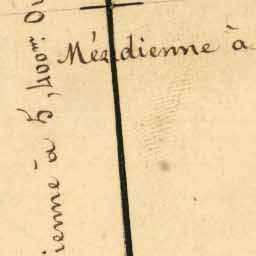 Méridienne à
ienne à 5,400m. O